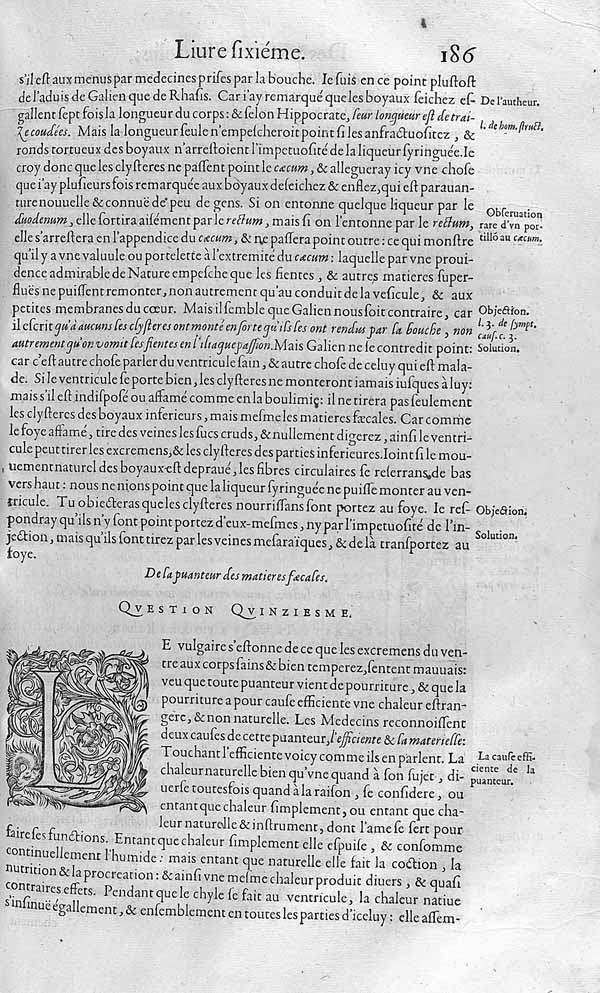 Liure sixiéme. 186
s'il est aux menus par medecines prises par la bouche. Ie suis en ce point plustost
de l'aduis de Galien que de Rhasis. Car i'ay remarqué que les boyaux seichez es-
De l'autheur.
gallent sept fois la longueur du corps: & selon Hippocrate, leur longueur est de trai-
ze coudées. Mais la longueur seule n'empescheroit point si les anfractuositez, &
l. de hom. struct.
ronds tortueux des boyaux n'arrestoient l'impetuosité de la liqueur syringuée. Ie
croy donc que les clysteres ne passent point le cæcum, & allegueray icy vne chose
que i'ay plusieurs fois remarquée aux boyaux deseichez & enflez, qui est parauan-
ture nouuelle & connuë de peu de gens. Si on entonne quelque liqueur par le
duodenum, elle sortira aisément par le rectum, mais si on l'entonne par le rectum,
Obseruation
rare d'vn por-
tillõ au cæcum.
elle s'arrestera en l'appendice du cæcum, & ne passera point outre: ce qui monstre
qu'il y a vne valuule ou portelette à l'extremité du cæcum: laquelle par vne proui-
dence admirable de Nature empesche que les fientes, & autres matieres super-
fluës ne puissent remonter, non autrement qu'au conduit de la vesicule, & aux
petites membranes du cœur. Mais il semble que Galien nous soit contraire, car
Obiection.
il escrit qu'à aucuns les clysteres ont monté en sorte qu'ils les ont rendus par la bouche, non
l. 3. de sympt.
caus. c. 3.
autrement qu'on vomit les fientes en l'iliaque passion. Mais Galien ne se contredit point:
Solution.
car c'est autre chose parler du ventricule sain, & autre chose de celuy qui est mala-
de. Si le ventricule se porte bien, les clysteres ne monteront iamais iusques à luy:
mais s'il est indisposé ou affamé comme en la boulimie: il ne tirera pas seulement
les clysteres des boyaux inferieurs, mais mesme les matieres fæcales. Car comme
le foye affamé, tire des veines les sucs cruds, & nullement digerez, ainsi le ventri-
cule peut tirer les excremens, & les clysteres des parties inferieures. Ioint si le mou-
uement naturel des boyaux est depraué, les fibres circulaires se reserrans de bas
vers haut: nous ne nions point que la liqueur syringuée ne puisse monter au ven-
tricule. Tu obiecteras que les clysteres nourrissans sont portez au foye. Ie res-
Obiection.
pondray qu'ils n'y sont point portez d'eux-mesmes, ny par l'impetuosité de l'in-
jection, mais qu'ils sont tirez par les veines mesaraïques, & de là transportez au
Solution.
foye.
De la puanteur des matieres fæcales.
QVESTION QVINZIESME.
LE vulgaire s'estonne de ce que les excremens du ven-
tre aux corps sains & bien temperez, sentent mauuais:
veu que toute puanteur vient de pourriture, & que la
pourriture a pour cause efficiente vne chaleur estran-
gere, & non naturelle. Les Medecins reconnoissent
deux causes de cette puanteur, l'efficiente & la materielle:
Touchant l'efficiente voicy comme ils en parlent. La
La cause effi-
ciente de la
puanteur.
chaleur naturelle bien qu'vne quand à son sujet, di-
uerse toutesfois quand à la raison, se considere, ou
entant que chaleur simplement, ou entant que cha-
leur naturelle & instrument, dont l'ame se sert pour
faire ses functions. Entant que chaleur simplement elle espuise, & consomme
continuellement l'humide: mais entant que naturelle elle fait la coction, la
nutrition & la procreation: & ainsi vne mesme chaleur produit diuers, & quasi
contraires effets. Pendant que le chyle se fait au ventricule, la chaleur natiue
s'insinuë égallement, & ensemblement en toutes les parties d'iceluy: elle assem-